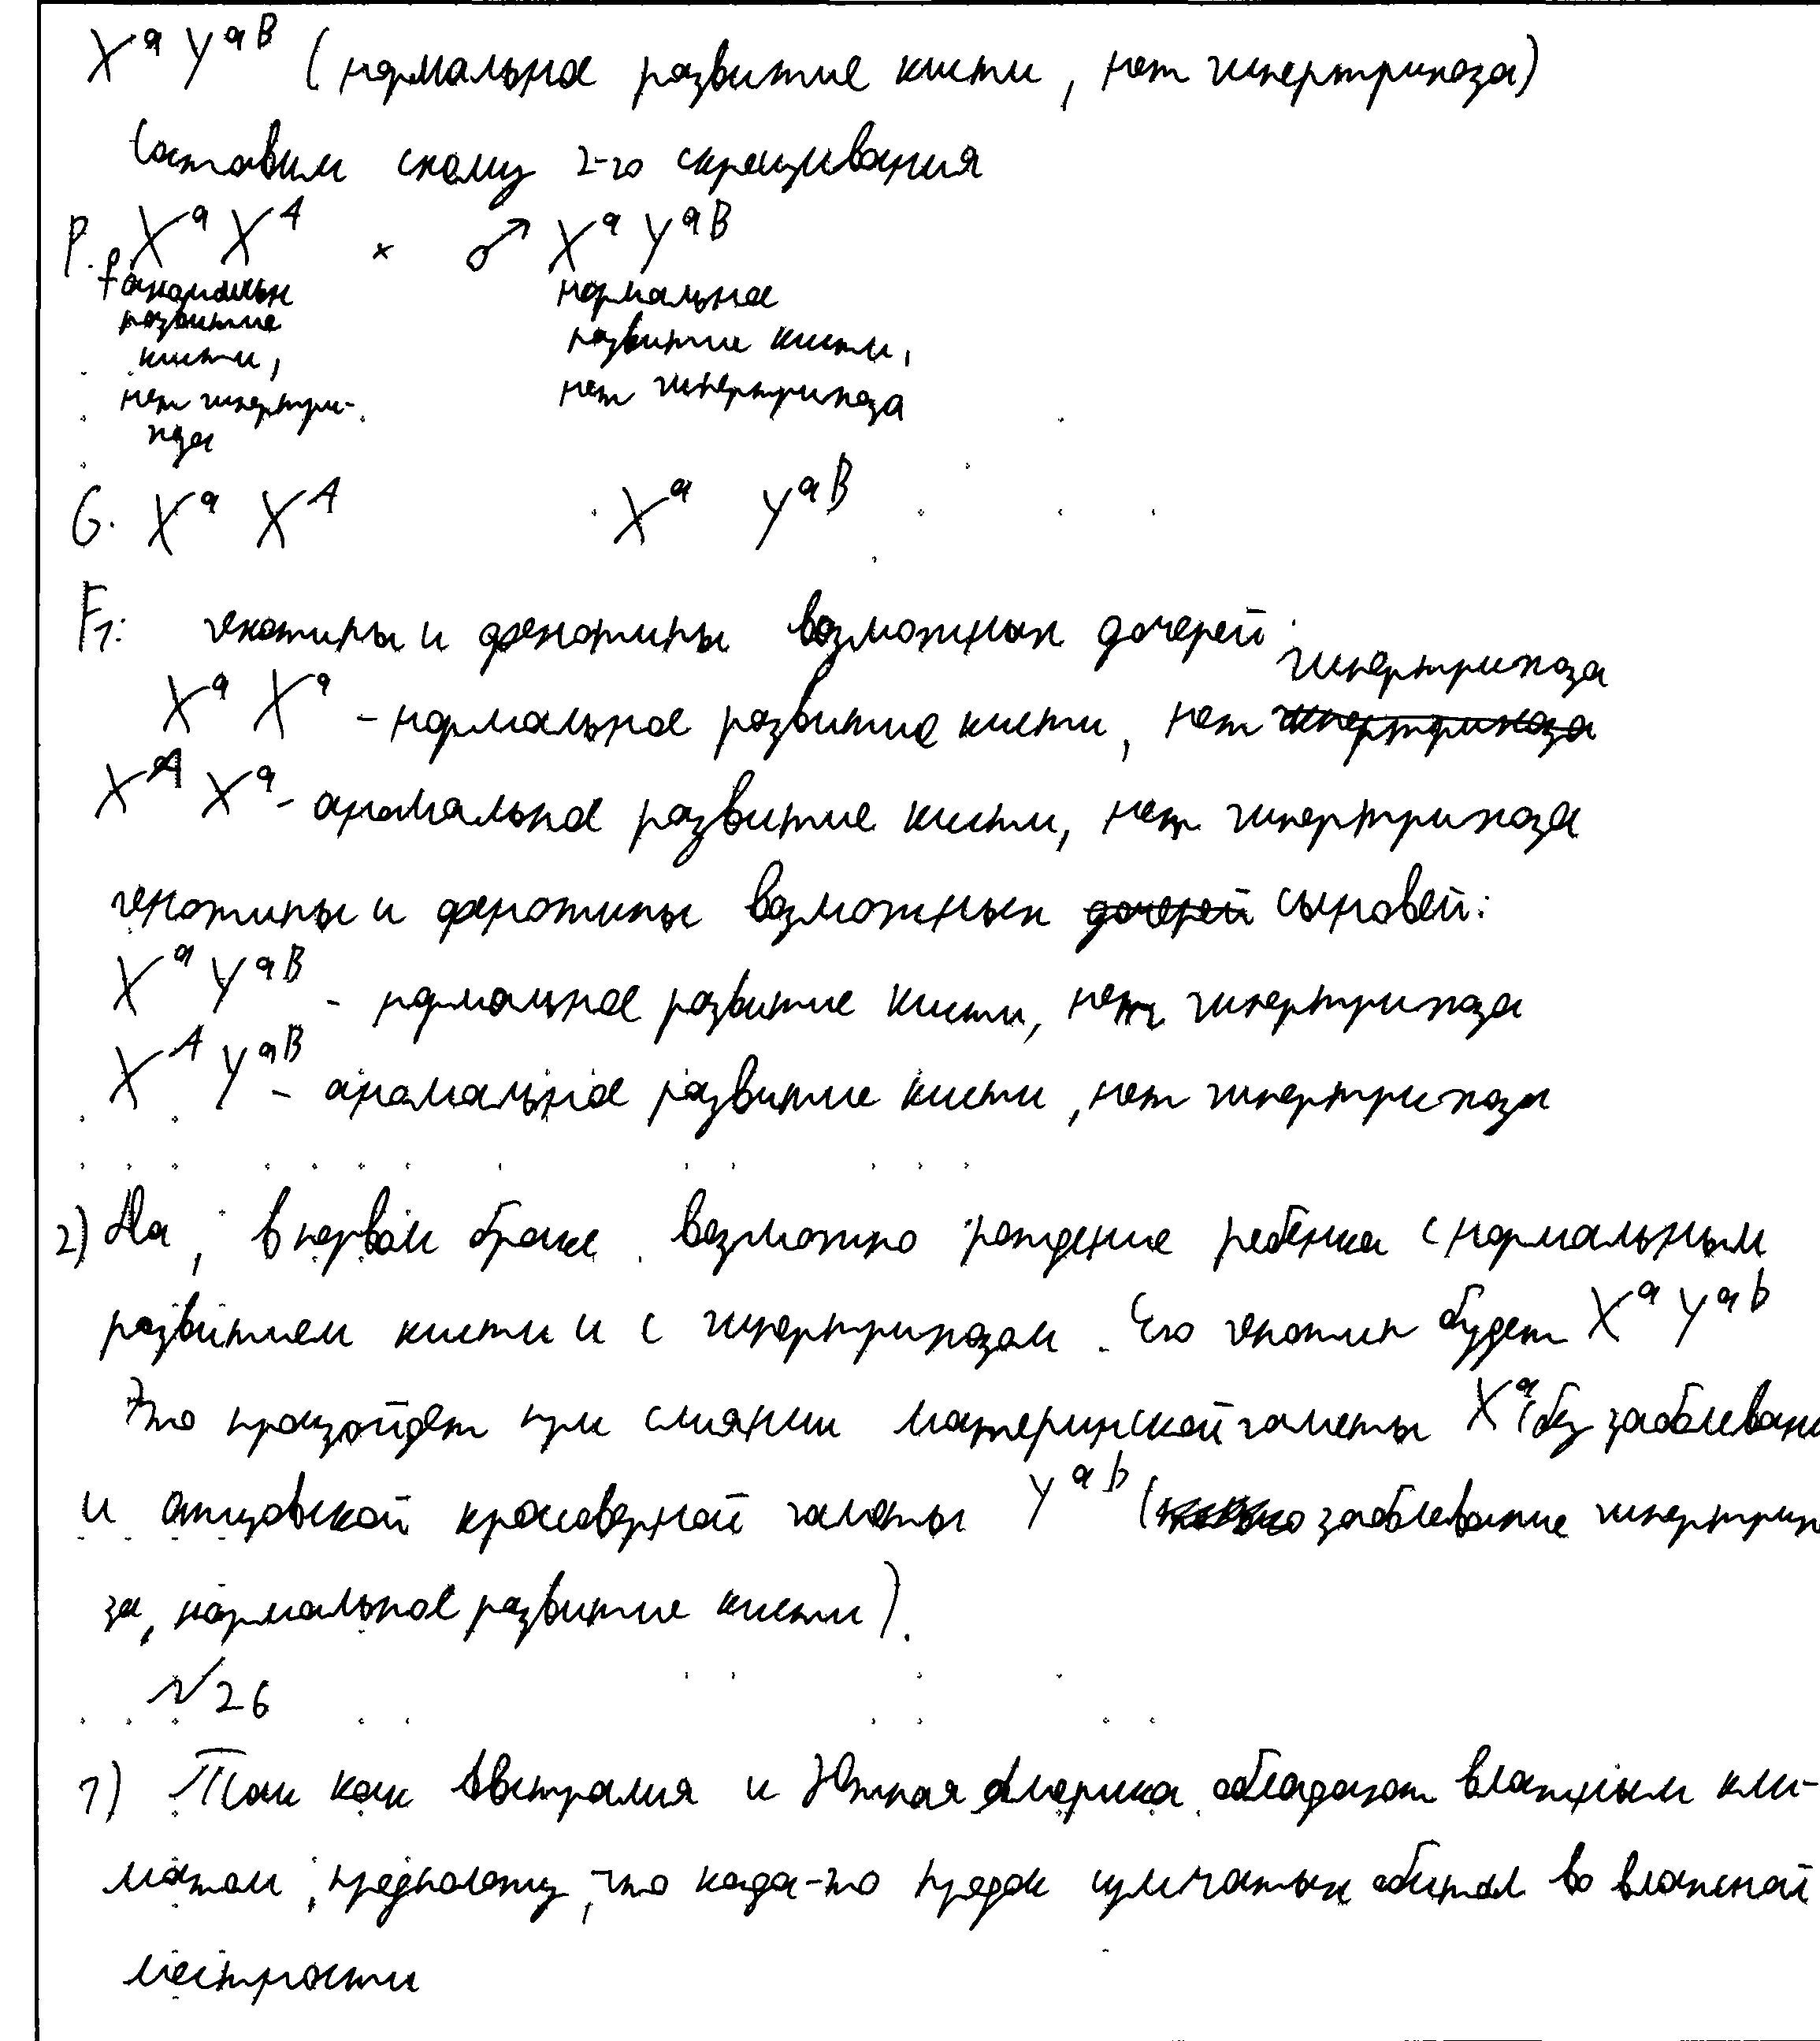 XᵃYᵃᴮ (нормальное развитие кисти, нет гипертрихоза)
Составим схему 2-го скрещивания
P. ♀ XᵃXᴬ × ♂ XᵃYᵃᴮ
аномальн нормальное
развитие развитие кисти,
кисти, нет гипертрихоза
нет гипертри-
хоза
G. Xᵃ Xᴬ Xᵃ Yᵃᴮ
F₁: генотипы и фенотипы возможных дочерей:
XᵃXᵃ - нормальное развитие кисти, нет гипертрихоза
XᴬXᵃ - аномальное развитие кисти, нет гипертрихоза
генотипы и фенотипы возможных дочерей сыновей:
XᵃYᵃᴮ - нормальное развитие кисти, нет гипертрихоза
XᴬYᵃᴮ - аномальное развитие кисти, нет гипертрихоза
2) Да, в первом браке возможно рождение ребенка с нормальным
развитием кисти и с гипертрихозом. Его генотип будет XᵃYᵃᵇ
Это произойдет при слиянии материнской гаметы Xᵃ (без заболеван
и отцовской кроссоверной гаметы Yᵃᵇ (заболевание гипертрихо
за, нормальное развитие кисти).
№26
1) Так как Австралия и Южная Америка обладают влажным кли-
матом, предположу, что когда-то предок сумчатых обитал во влажной
местности